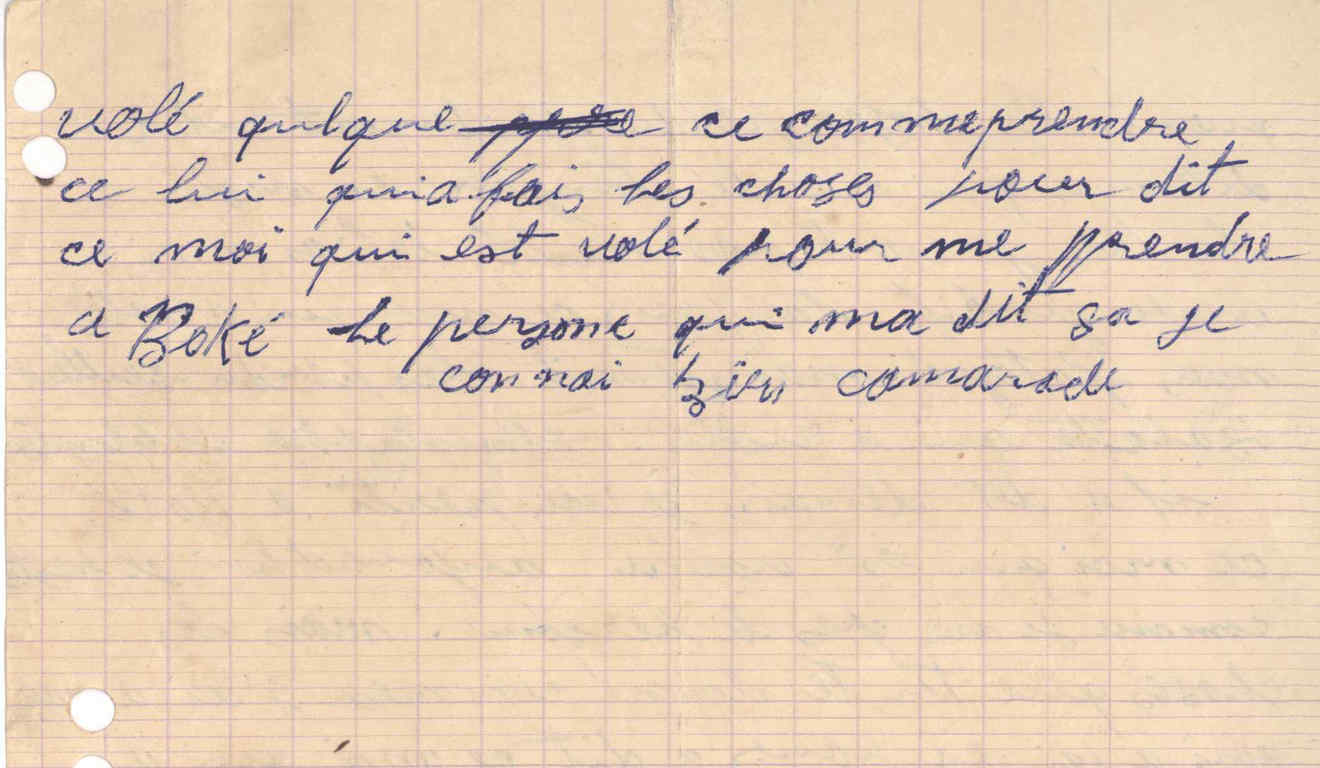 volé qulque ce commeprendre
ce lui qui a fais les choses pour dit
ce moi qui est volé pour me prendre
a Boké le persone qui ma dit sa je
connai bien camarade